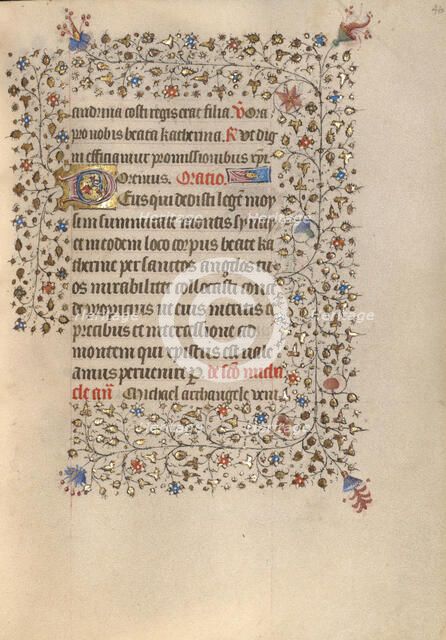 46
andrina costi regis erat filia. V Ora
pro nobis beata katherina. R Ut dig
ni efficiamur promissionibus xpi
Oremus. Oratio.
Deus qui dedisti legem moy
si in summitate montis synay
et in eodem loco corpus beate ka
therine per sanctos angelos tu
os mirabiliter collocasti conce
de propicius ut eius meritis et
precibus et intercessione ad
montem qui xpistus est vale
amus pervenire P de sco micha
ele an Michael archangele veni
heritage images